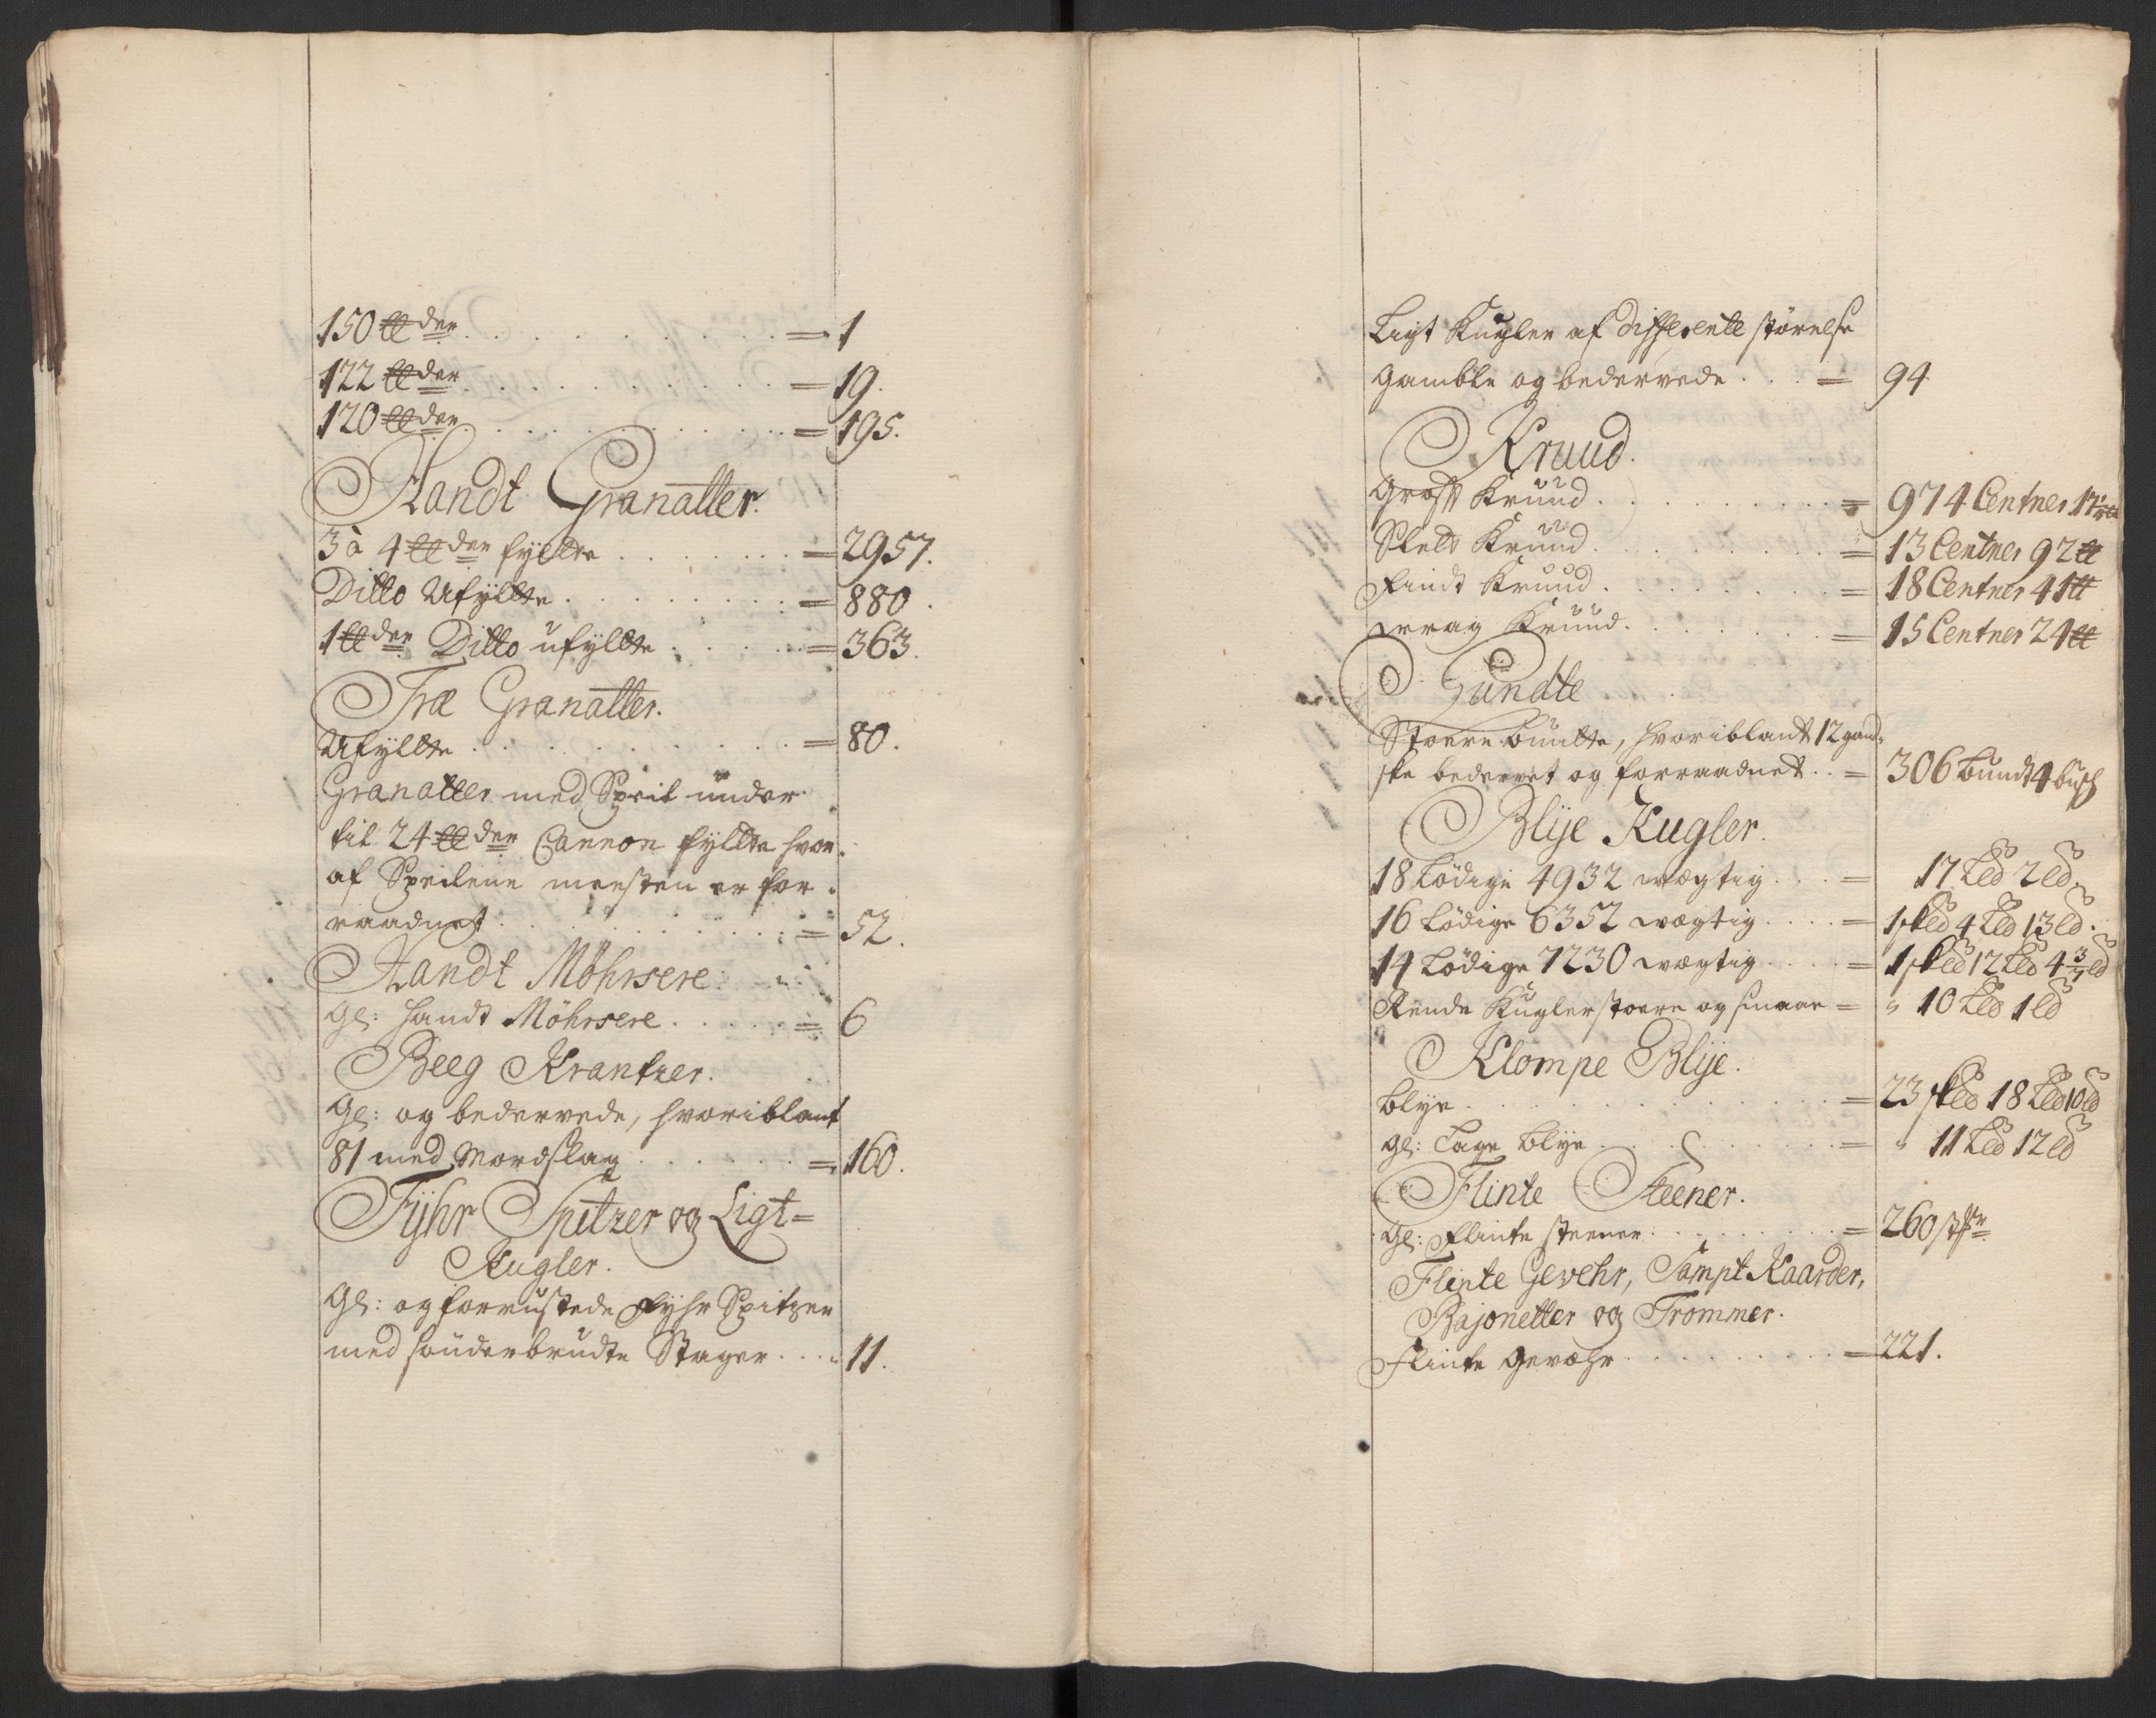 150 ℔der . . . . . . . . . = 1
122 ℔der . . . . . . . . . = 19.
120 ℔der . . . . . . . . . = 195.
Handt Granatter.
3 à 4 ℔der fyldte . . . . . . = 2957.
Ditto Ufyldte . . . . . . . = 880.
1 ℔der Ditto ufyldte . . . . . = 363.
Træ Granatter.
Ufyldte . . . . . . . . . = 80.
Granatter med Speil under
til 24 ℔der Cannon fyldte hvor
af Speilene meesten er for-
raadnet . . . . . . . . . = 52.
Handt Möhrsere.
Gl: Handt Möhrsere . . . . . = 6
Beeg Krantzer.
Gl: og bedervede, hvoriblant
81 med Mordslag . . . . . . = 160.
Fyhr Spitzer og Ligt=
Kugler.
Gl: og forrustede Fyhr Spitzer
med sönderbrudte Stager . . . . 11.
Ligt Kugler af differente störelse
gamble og bedervede . . . = 94
Kruud.
Groft Kruud . . . . . . . . = 974 Centner 17 ℔
Slet Kruud . . . . . . . . = 13 Centner 92 ℔
Findt Kruud . . . . . . . . = 18 Centner 41 ℔
Wrag Kruud . . . . . . . = 15 Centner 24 ℔
Lundte
Stoere bundte, hvoriblant 12 gand-
ske bedervet og forraadnet . . = 306 bundt 4 buss
Blije Kugler.
18 Lödige 4932 wægtig . . . = 17 L℔ 2 ℔.
16 Lödige 6352 wægtig . . . . = 1 sk℔ 4 L℔ 13 ℔.
14 Lödige 7230 wægtig . . . . = 1 sk℔ 12 L℔ 4 3/4 ℔
Rende Kugler stoere og smaae = " 10 L℔ 1 ℔
Klompe Blije.
Blye . . . . . . . . . . = 23 sk℔ 18 L℔ 10 ℔
gl: Tage Blye . . . . . . . = " 11 L℔ 12 ℔
Flinte Steener.
Gl: Flinte steener . . . . . . = 260 st:
Flinte Gevehr, Sampt Kaarder,
Bajonetter og Trommer.
Flinte Gevæhr . . . . . . . = 221.